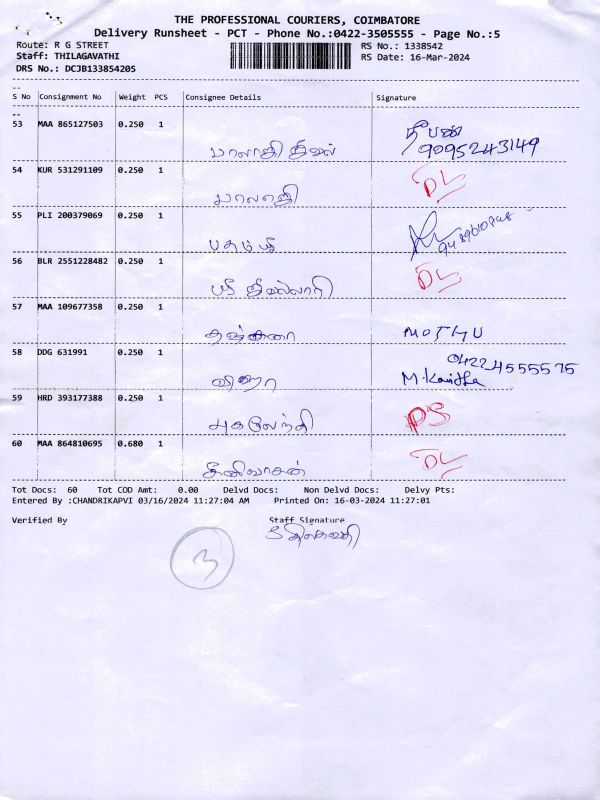 THE PROFESSIONAL COURIERS, COIMBATORE
Delivery Runsheet - PCT - Phone No.:0422-3505555 - Page No.:5
Route: R G STREET RS No.: 1338542
Staff: THILAGAVATHI RS Date: 16-Mar-2024
DRS No.: DCJB133854205
S No Consignment No Weight PCS Consignee Details Signature
53 MAA 865127503 0.250 1
பாலாஜி தீபன்
9095243149
54 KUR 531291109 0.250 1 DL
பாலாஜி
55 PLI 200379069 0.250 1
56 BLR 2551228482 0.250 1 DL
ஸ்ரீ
57 MAA 109677358 0.250 1
MOTHU
58 DDG 631991 0.250 1 04224555575
விஜயா M.Kavitha
59 HRD 393177388 0.250 1 DS
புகலேந்தி
60 MAA 864810695 0.680 1 DL
சீனிவாசன்
Tot Docs: 60 Tot COD Amt: 0.00 Delvd Docs: Non Delvd Docs: Delvy Pts:
Entered By :CHANDRIKAPVI 03/16/2024 11:27:04 AM Printed On: 16-03-2024 11:27:01
Verified By Staff Signature
திலகவதி
3